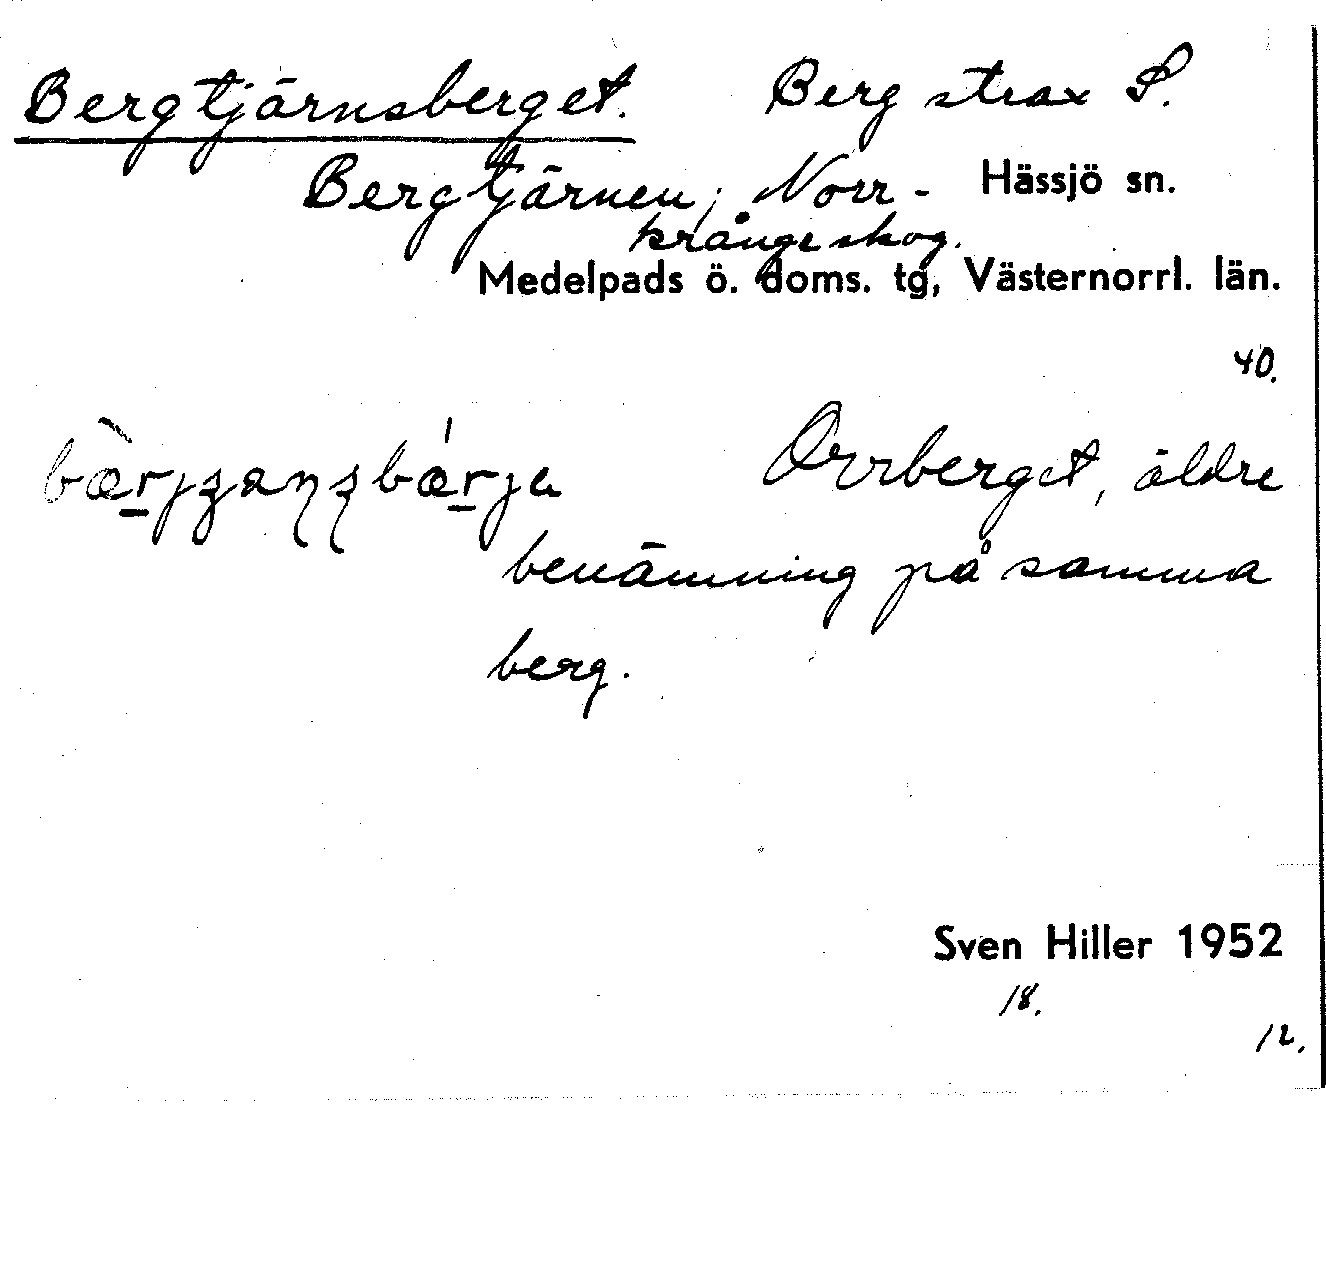 Bergtjärnsberget. Berg strax S.
Bergtjärnen; Norr- Hässjö sn.
krångeskog.
Medelpads ö. doms. tg, Västernorrl. län.
40.
Orrberget, äldre
benämning på samma
berg.
Sven Hiller 1952
18.
12.